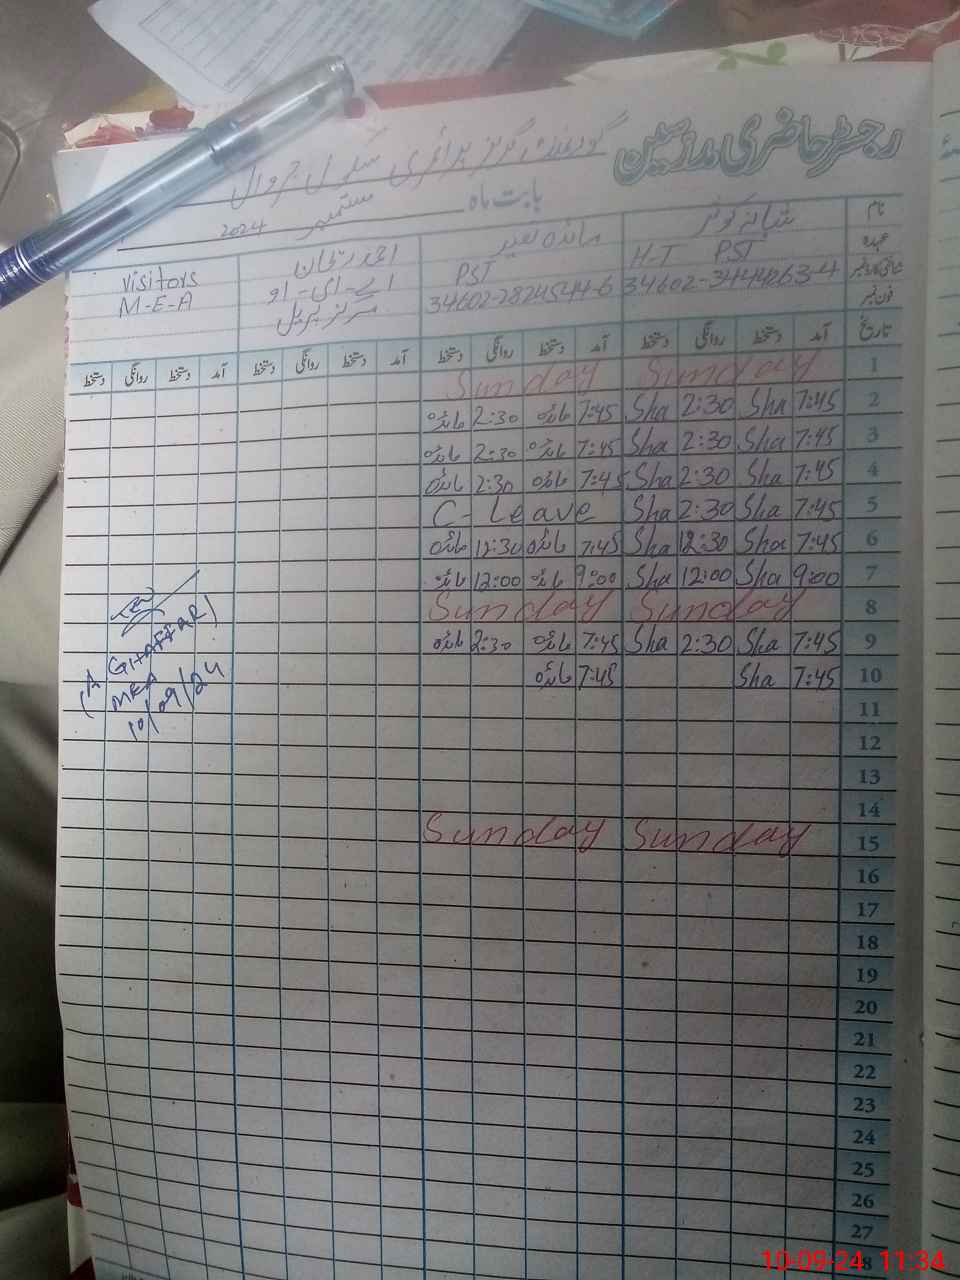 رجسٹر حاضری مدرسین
گورنمنٹ گرلز پرائمری سکول
بابت ماہ ستمبر 2024
نام شبانہ کوثر مائدہ نصیر احمد ریحان visitors
عہدہ H-T PST PST اے-ای-او M-E-A
34602-3444263-4 34602-2824544-6 مرکز
فون نمبر
تاریخ آمد دستخط روانگی دستخط آمد دستخط روانگی دستخط آمد دستخط روانگی دستخط آمد دستخط روانگی دستخط
1 Sunday Sunday
2 7:45 Sha 2:30 Sha 7:45 مائدہ 2:30 مائدہ
3 7:45 Sha 2:30 Sha 7:45 مائدہ 2:30 مائدہ
4 7:45 Sha 2:30 Sha 7:45 مائدہ 2:30 مائدہ
5 7:45 Sha 2:30 Sha C-Leave
6 7:45 Sha 12:30 Sha 7:45 مائدہ 12:30 مائدہ
7 9:00 Sha 12:00 Sha 9:00 مائدہ 12:00 مائدہ
8 Sunday Sunday
9 7:45 Sha 2:30 Sha 7:45 مائدہ 2:30 مائدہ
10 7:45 Sha 7:45 مائدہ
(A GHAFFAR)
MEA
10/09/24
11
12
13
14
15 Sunday Sunday
16
17
18
19
20
21
22
23
24
25
26
27
28
10-09-24 11:34